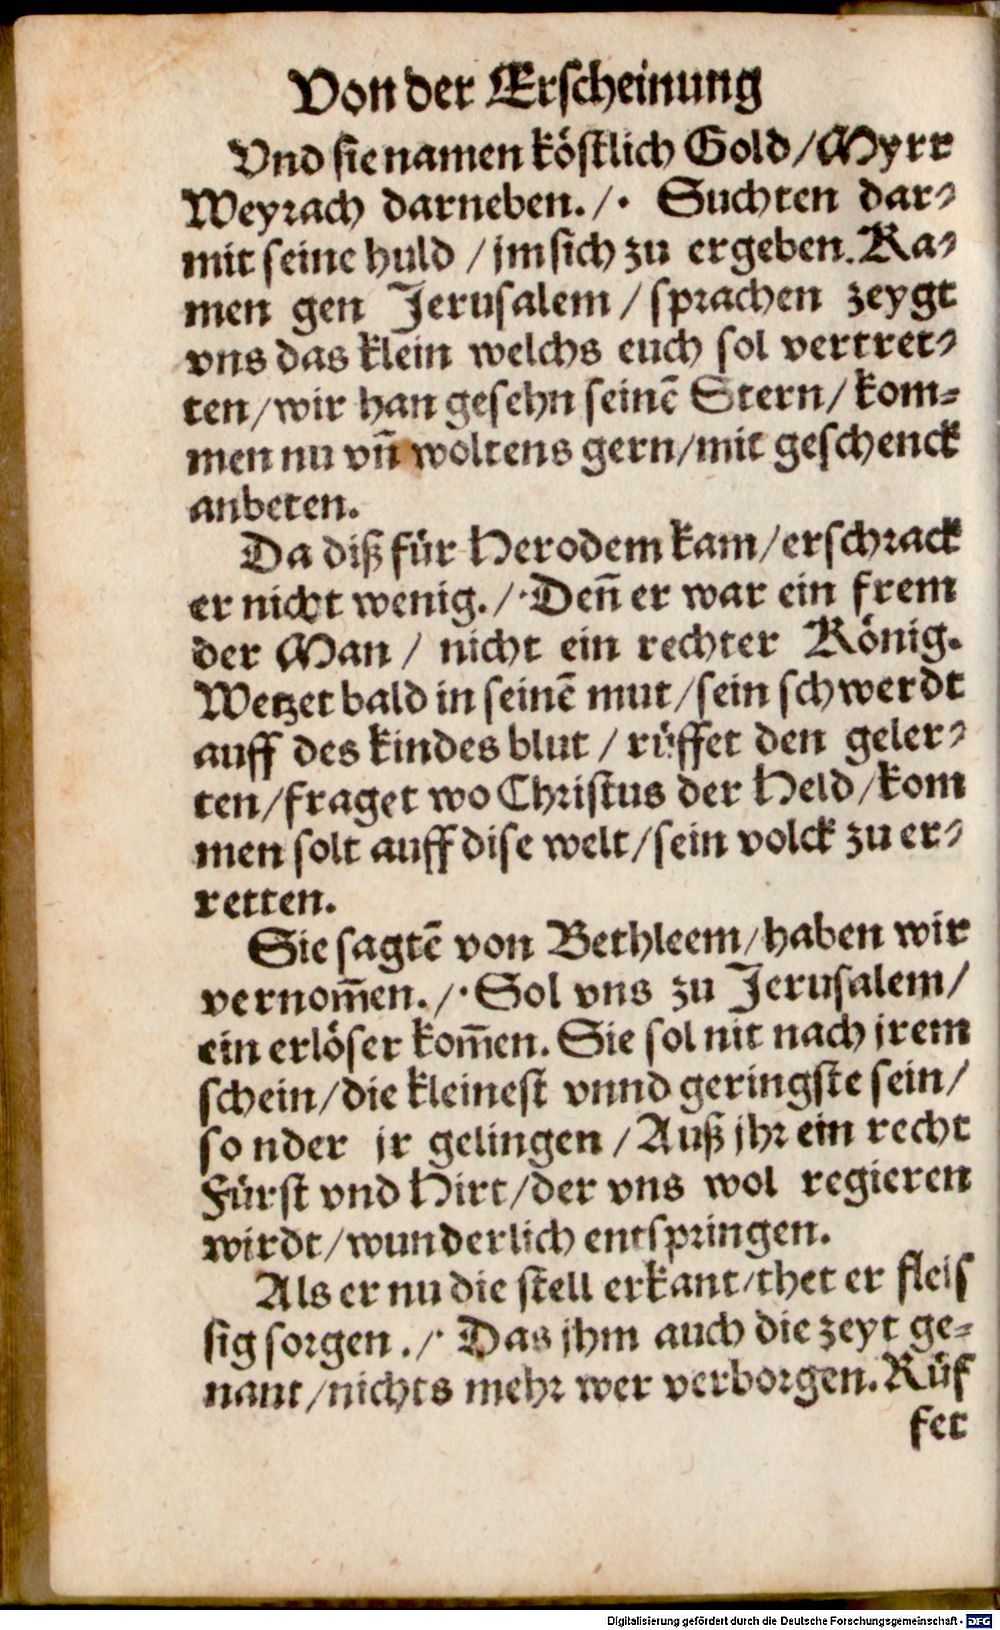 Von der Erscheinung
Vnd sie namen köstlich Gold/Myrr
Weyrach darneben./. Suchten dar⸗
mit seine huld /jm sich zu ergeben. Ka⸗
men gen Jerusalem / sprachen zeygt
vns das klein welchs euch sol vertret⸗
ten/wir han gesehn seinē Stern/ kom⸗
men nu vn̄ woltens gern/mit geschenck
anbeten.
Da diß für Herodem kam/erschrack
er nicht wenig./. Den̄ er war ein frem
der Man / nicht ein rechter König.
Wetzet bald in seinē mut/sein schwerdt
auff des kindes blut / rüffet den geler⸗
ten/fraget wo Christus der Held/kom
men solt auff dise welt/sein volck zu er⸗
retten.
Sie sagtē von Bethleem/haben wir
vernom̄en./. Sol vns zu Jerusalem/
ein erlöser kom̄en. Sie sol nit nach jrem
schein/die kleinest vnnd geringste sein/
so nder jr gelingen /Auß jhr ein recht
Fürst vnd Hirt/der vns wol regieren
wirdt/wunderlich entspringen.
Als er nu die stell erkant/thet er fleis
sig sorgen ./. Das jhm auch die zeyt ge⸗
nant/nichts mehr wer verborgen. Rüf
fet
Digitalisierung gefördert durch die Deutsche Forschungsgemeinschaft - DFG